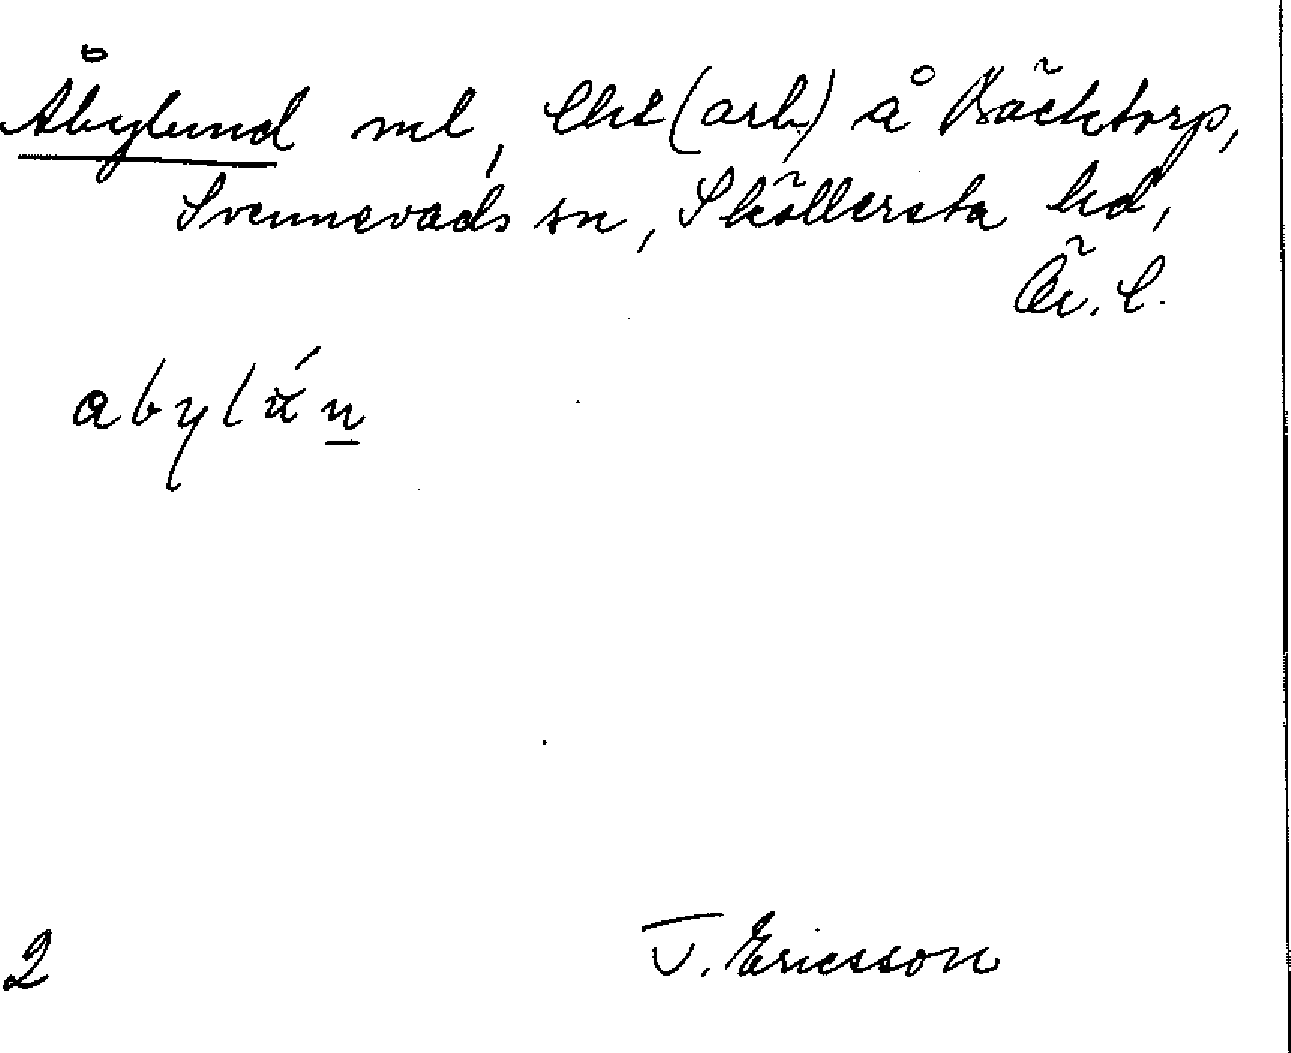 Åbylund ml, lht (arb.) å Bäcktorp,
Svennevads sn, Sköllersta hd,
Ör. l.
abyl
2
J. Ericsson